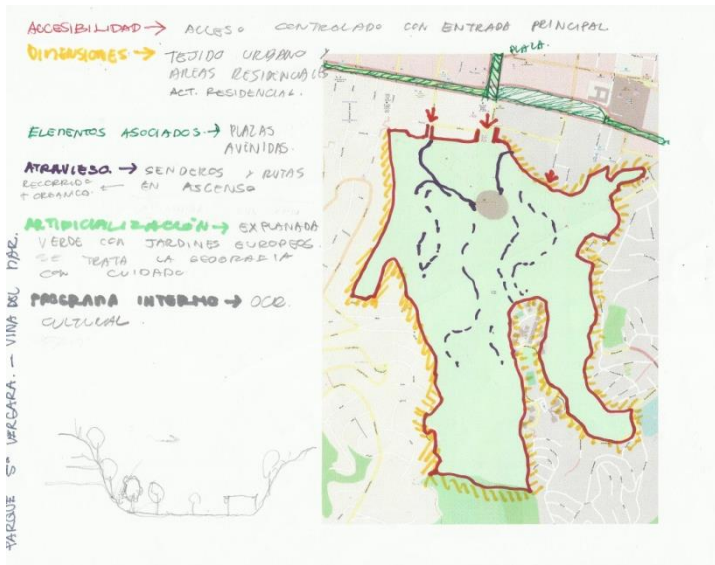 ACCESIBILIDAD → ACCESO CONTROLADO CON ENTRADA PRINCIPAL
DIMENSIONES → TEJIDO URBANO Y
AREAS RESIDENCIALES
ACT. RESIDENCIAL.
PLAZA.
ELEMENTOS ASOCIADOS → PLAZAS
AVENIDAS.
ATRAVIESO. → SENDEROS Y RUTAS
EN ASCENSO
RECORRIDO ←
+ ORGANICO.
ARTIFICIALIZACIÓN → EXPLANADA
VERDE CON JARDINES EUROPEOS.
SE TRATA LA GEOGRAFIA
CON CUIDADO
PROGRAMA INTERNO → OCIO.
CULTURAL
PARQUE 5ª VERGARA. — VIÑA DEL MAR.